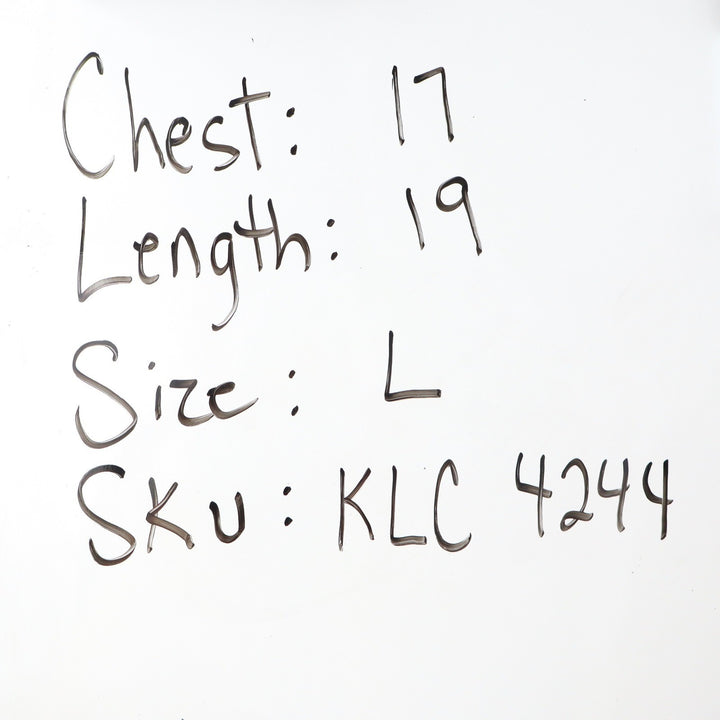 Chest: 17
Length: 19
Size: L
SKU: KLC 4244